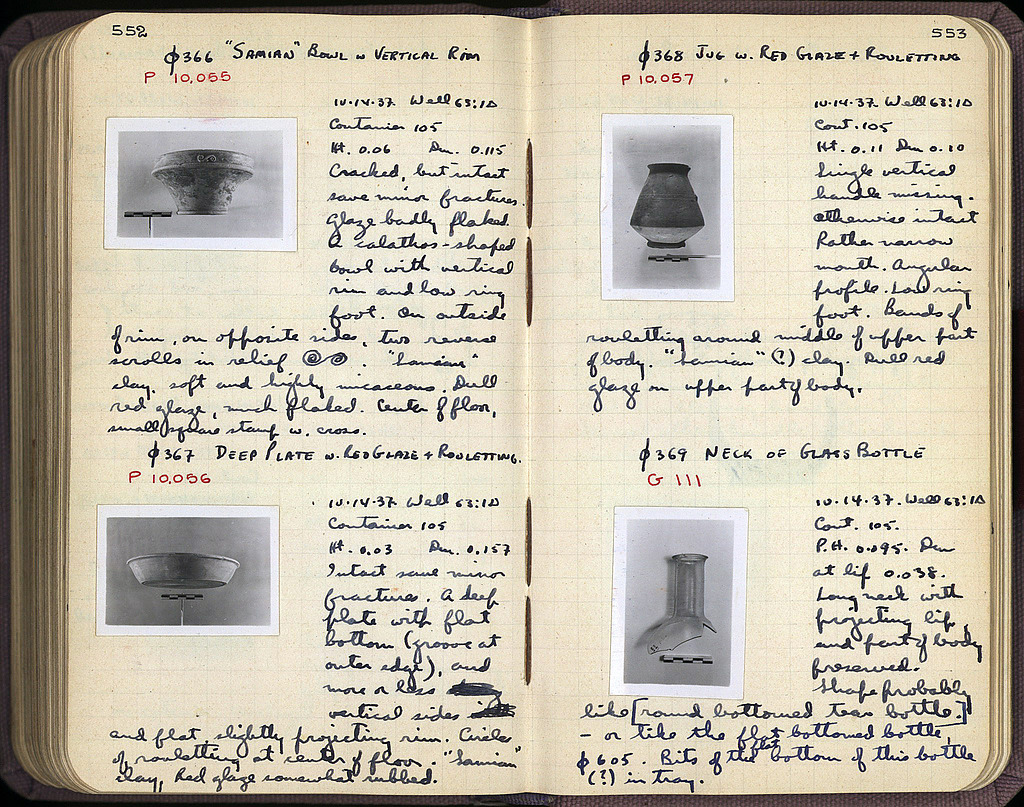 552
ϕ366 "Samian" Bowl w Vertical Rim
P 10,055
10.14.37 Well 63:1Δ
Container 105
Ht. 0.06 Dm. 0.115
Cracked, but intact
save minor fractures.
Glaze badly flaked.
A calathos-shaped
bowl with vertical
rim and low ring
foot. On outside
of rim, on opposite sides, two reverse
scrolls in relief . "Samian"
clay, soft and highly micaceous. Dull
red glaze, much flaked. Center of floor,
small square stamp w. cross.
ϕ367 Deep Plate w. Red Glaze + Rouletting.
P 10,056
10.14.37 Well 63:1Δ
Container 105
Ht. 0.03 Dm. 0.157
Intact save minor
fractures. A deep
plate with flat
bottom (groove at
outer edge), and
more or less
vertical sides
and flat slightly projecting rim. Circle
of rouletting at center of floor. "Samian"
clay, Red glaze somewhat rubbed.
553
ϕ368 Jug w. Red Glaze + Rouletting
P 10,057
10.14.37 Well 63:1Δ
Cont. 105
Ht. 0.11 Dm 0.10
Single vertical
handle missing.
otherwise intact
Rather narrow
mouth. Angular
profile. Low ring
foot. Bands of
rouletting around middle of upper part
of body. "Samian" (?) clay. Dull red
glaze on upper part of body.
ϕ369 Neck of Glass Bottle
G 111
10.14.37. Well 63:1Δ
Cont. 105.
P.H. 0.095. Dm
at lip 0.038.
Long neck with
projecting lip,
and part of body
preserved.
Shape probably
like [round bottomed tear bottle.]
- or like the flat bottomed bottle,
ϕ605. Bits of the flat bottom of this bottle
(?) in tray.